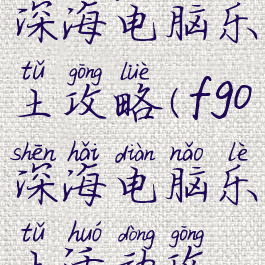 深海电脑乐
tǔ gōng lüè
土攻略(fgo
shēn hǎi diàn nǎo lè
深海电脑乐
tǔ huó dòng gōng
土活动攻